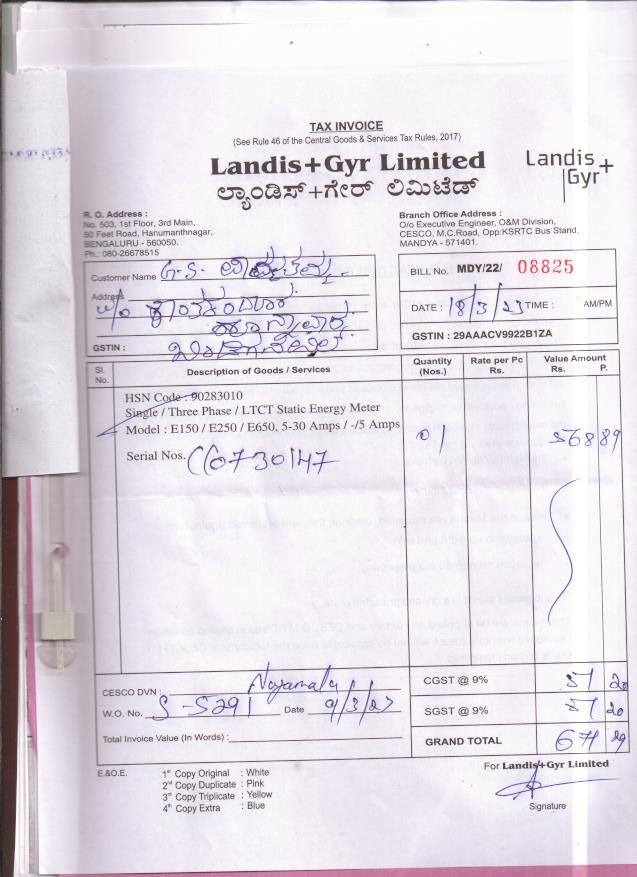 TAX INVOICE
(See Rule 46 of the Central Goods & Services Tax Rules, 2017)
Landis+Gyr Limited
ಲ್ಯಾಂಡಿಸ್+ಗೇರ್ ಲಿಮಿಟೆಡ್
Landis+
Gyr
R. O. Address :
No. 503, 1st Floor, 3rd Main,
50 Feet Road, Hanumanthnagar,
BENGALURU - 560050.
Ph.: 080-26678515
Branch Office Address :
O/o Executive Engineer, O&M Division,
CESCO, M.C.Road, Opp:KSRTC Bus Stand.
MANDYA - 571401.
Customer Name G.S.
Address
GSTIN :
BILL No. MDY/22/ 08825
DATE : 18/3/23 TIME : AM/PM
GSTIN : 29AAACV9922B1ZA
Sl. No. Description of Goods / Services Quantity (Nos.) Rate per Pc Rs. Value Amount Rs. P.
HSN Code : 90283010
Single / Three Phase / LTCT Static Energy Meter
Model : E150 / E250 / E650, 5-30 Amps / -/5 Amps 01 568 89
Serial Nos. CC0730147
CESCO DVN :
W.O. No. S-5291 Date 9/3/23
Total Invoice Value (In Words) :
CGST @ 9% 51 20
SGST @ 9% 51 20
GRAND TOTAL 671 29
E.&O.E.
1st Copy Original : White
2nd Copy Duplicate : Pink
3rd Copy Triplicate : Yellow
4th Copy Extra : Blue
For Landis+Gyr Limited
Signature